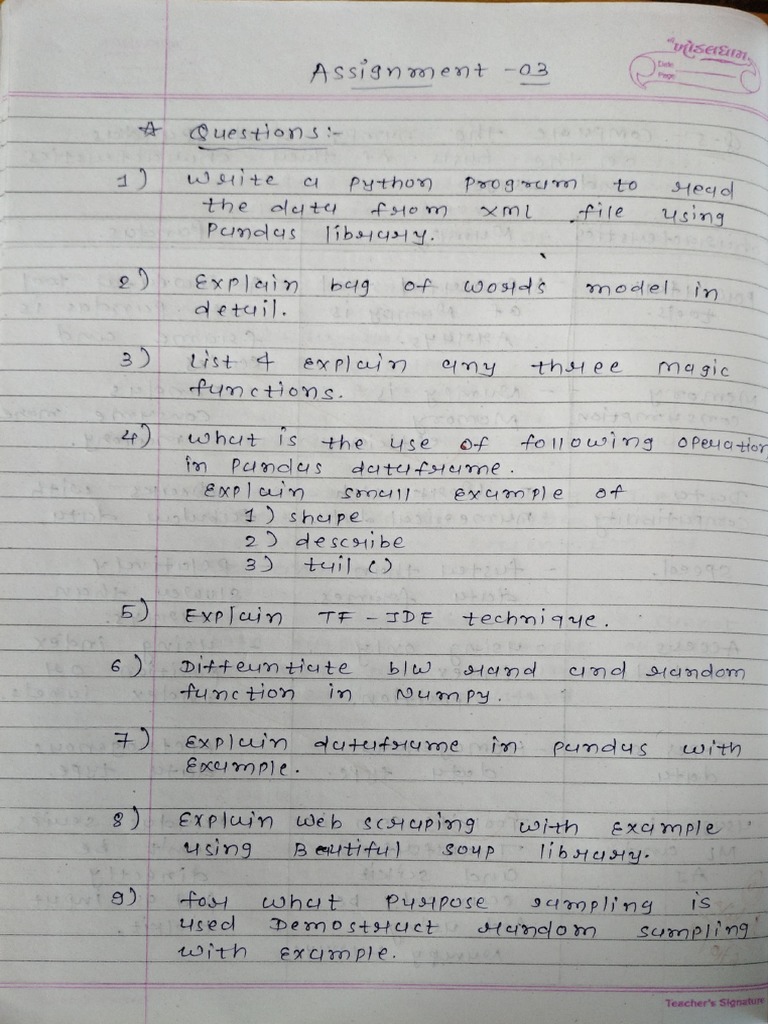 Assignment -03
ખોડલધામ
Date
Page
☆ Questions:-
1) Write a python program to read
the data from xml file using
Pandas library.
2) Explain bag of words model in
detail.
3) List & explain any three magic
functions.
4) What is the use of following operation
in Pandas dataframe.
Explain small example of
1) shape
2) describe
3) tail ()
5) Explain TF-IDE technique.
6) Diffeuntiate b/w rand and random
function in Numpy.
7) Explain dataframe in pandas with
Example.
8) Explain web scraping with example
using Beutiful soup library.
9) for what purpose sampling is
used Demostract random sampling
with example.
Teacher's Signature